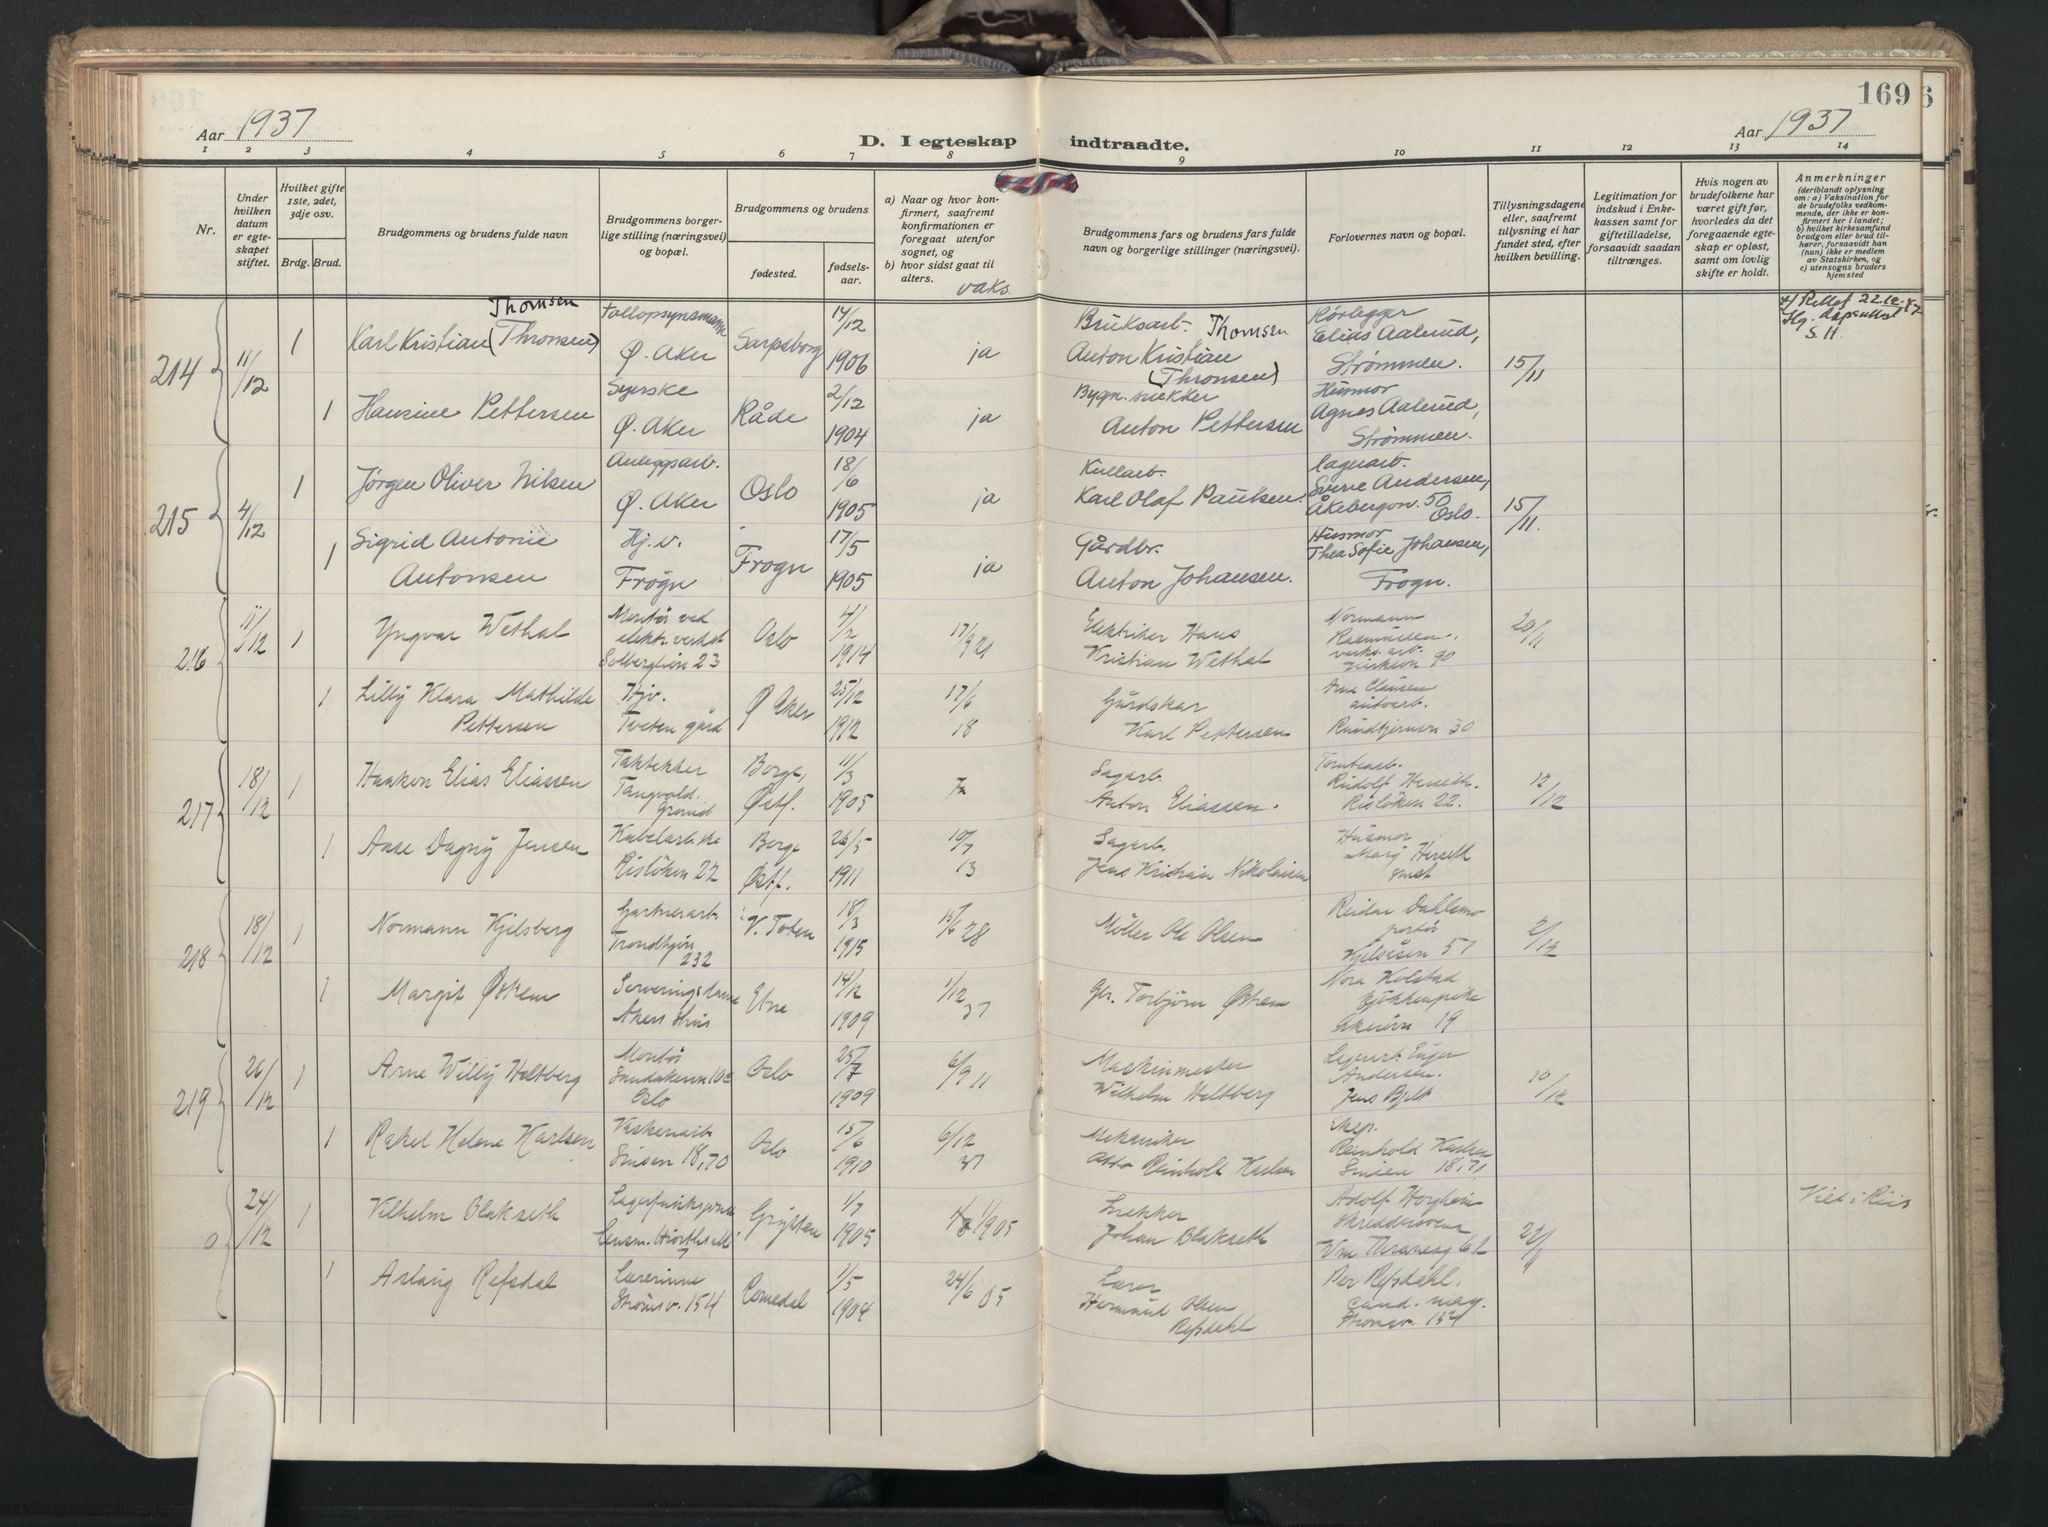 169
6
Aar 1937
D. I egteskap indtraadte.
Aar 1937
1 2 3 4 5 6 7 8 9 10 11 12 13 14
Nr.
Under hvilken datum er egteskapet stiftet.
Hvilket gifte 1ste, 2det, 3dje osv.
Brdg. Brud.
Brudgommens og brudens fulde navn
Brudgommens borgerlige stilling (næringsvei) og bopæl.
Brudgommens og brudens
fødested.
fødselsaar.
a) Naar og hvor konfirmert, saafremt konfirmationen er foregaat utenfor sognet, og
b) hvor sidst gaat til alters.
vaks.
Brudgommens fars og brudens fars fulde navn og borgerlige stillinger (næringsvei).
Forlovernes navn og bopæl.
Tillysningsdagene eller, saafremt tillysning ei har fundet sted, efter hvilken bevilling.
Legitimation for indskud i Enkekassen samt for giftetilladelse, forsaavidt saadan tiltrænges.
Hvis nogen av brudefolkene har været gift før, hvorledes da det foregaaende egteskap er opløst, samt om lovlig skifte er holdt.
Anmerkninger
(deriblandt oplysning om: a) Vaksination for de brudefolks vedkommende, der ikke er konfirmert her i landet;
b) hvilket kirkesamfund brudgom eller brud tilhører, forsaavidt han (hun) ikke er medlem av Statskirken, og
c) utensogns bruders hjemsted
214 11/12 1 Karl Kristian (Thronsen) Thomsen
Ø. Aker Sarpsborg 14/12 1906 ja
Bruksarb. Thomsen
Anton Kristian
(Thronsen)
Rørlegger
Elias Aalerud,
Strømmen. 15/11
S.H.
1 Hansine Pettersen
Syerske
Ø. Aker Råde 2/12 1904 ja
Bygn.snekker
Anton Pettersen
Husmor
Agnes Aalerud,
Strømmen.
215 4/12 1 Jørgen Oliver Nilsen
Anleggsarb.
Ø. Aker Oslo 18/6 1905 ja
Karl Olaf Paulsen.
Lagerarb.
Sverre Andersen,
Åkebergvn. 50
Oslo. 15/11.
1 Sigrid Antonie
Antonsen
Hj.v.
Frogn Frogn 17/5 1905 ja
Gårdbr.
Anton Johansen.
Husmor
Thea Sofie Johansen,
Frogn.
216 11/12 1 Yngvar Wethal
Montør ved
elektr. verket
23 Oslo 4/2 1914 17/9 21
Elektriker Hans
Kristian Wethal
Normann
Rasmussen
verks. arb.
90 20/11
1 Lilly Klara Mathilde
Pettersen
Hjv.
Tveten gård Ø Aker 25/12 1912 17/6 18
Gårdskar
Karl Pettersen
Arne Clausen
autoarb.
30
217 18/12 1 Haakon Elias Eliassen
Taktekker
Tangvold.
Grorud Borge, Østf. 11/3 1905
Sagarb.
Anton Eliassen.
Tomtearb.
Rudolf Herseth.
Risløken 22. 12/12
1 Aase Dagny Jensen
Risløken 22 Borge Østf. 26/5 1911 10/7 13
Sagarb.
Jens Kristian Nikolaisen
Husmor
Mary Herseth
smst
218 18/12 1 Normann Kjelsberg
Gartnerarb.
Trondhjvn
232 V. Toten 18/3 1915 15/6 28
Møller Ole Olsen
Reidar Dahlsmo
portør
Kjelsåsvn 57 2/12
1 Margit Østrem
Serveringsdame
Akers Hus Etne 14/12 1909 1/12 37
Gbr. Torbjørn Østrem
Nora Kolstad
kjøkkenpike
19
219 26/12 1 Arne Willy Holtberg
Montør
Sandakervn 10c
Oslo Oslo 25/7 1909 6/9 11
Maskinmester
Wilhelm Holtberg
Lagerarb. Eugen
Andersen.
Jens Bjelt 10/12
1 Rakel Helene Karlsen
Sinsen 18,70 Oslo 15/6 1910 6/12 37
Mekaniker
Otto Reinholt Karlsen
Reinhold Karlsen
Sinsen 18,71
0 24/12 1 Vilhelm Blakseth
Grytten 1/7 1905 1905
Snekker
Johan Blakseth
Adolf Horgheim
Skreddersvenn
Vm Thranesg 62 22/11
Viet i Riis
1 Aslaug Refsdal
Lærerinne
Strømsv. 154 Romedal 1/5 1904 24/6 05
Lærer
Hermund Olsen
Refsdahl
Per Refsdahl.
cand. mag.
154